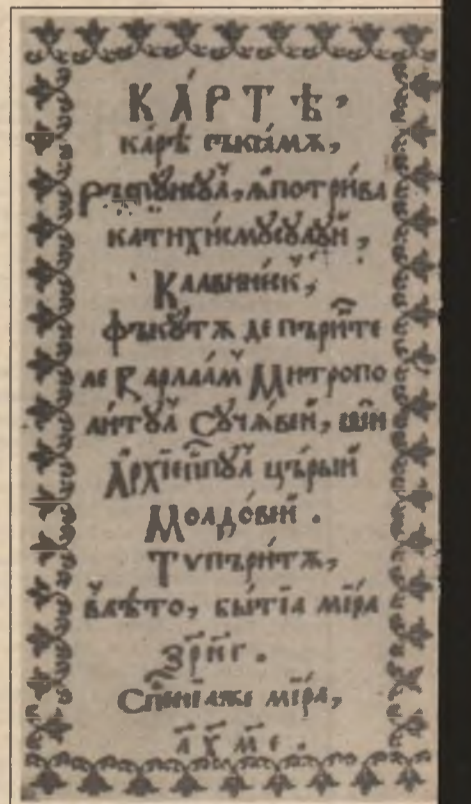 КА́РТѢ,
ка́рѣ съкїа́мѫ,
Ръспꙋ́нсꙋл, ꙟпотри́ва
катихи́смꙋсꙋлꙋй,
Калвине́ск,
фъкꙋ́тѫ де пъри́нте
ле Варлаа́м Митропо
ли́тꙋл Сꙋчѧ́вїй, шїи
Архїепп꙽ꙋл цъ́рыи
Молдо́вїй.
Тѵпъри́тѫ,
в̾лѣ́то, бытїа ми́ра
҂зрн҃г.
Сп꙽енїѧже мі́ра,
҂а҃хме.